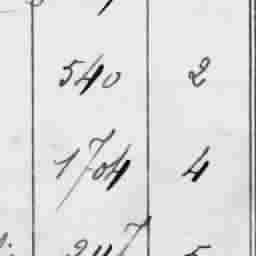 540 2
1704 4